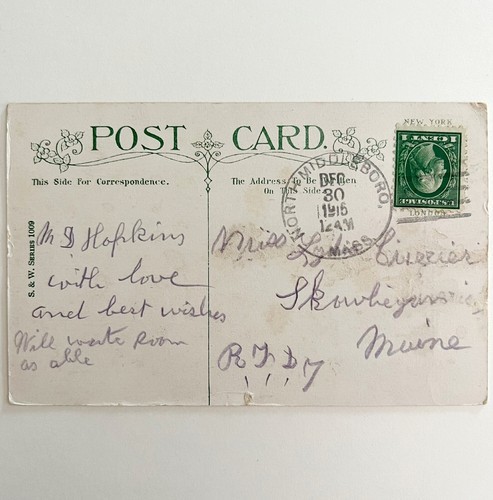 POST CARD.
NEW YORK
1 CENT 1
U.S. POSTAGE
LONDON
This Side For Correspondence.
The Address To Be
On This Side
NORTH MIDDLEBORO,
DEC
30
1916
12AM
MASS.
S. & W. SERIES 1009
M D Hopkins
with love
and best wishes
Will write soon
as able
Miss Currier
Skowhegan
Maine
R F D